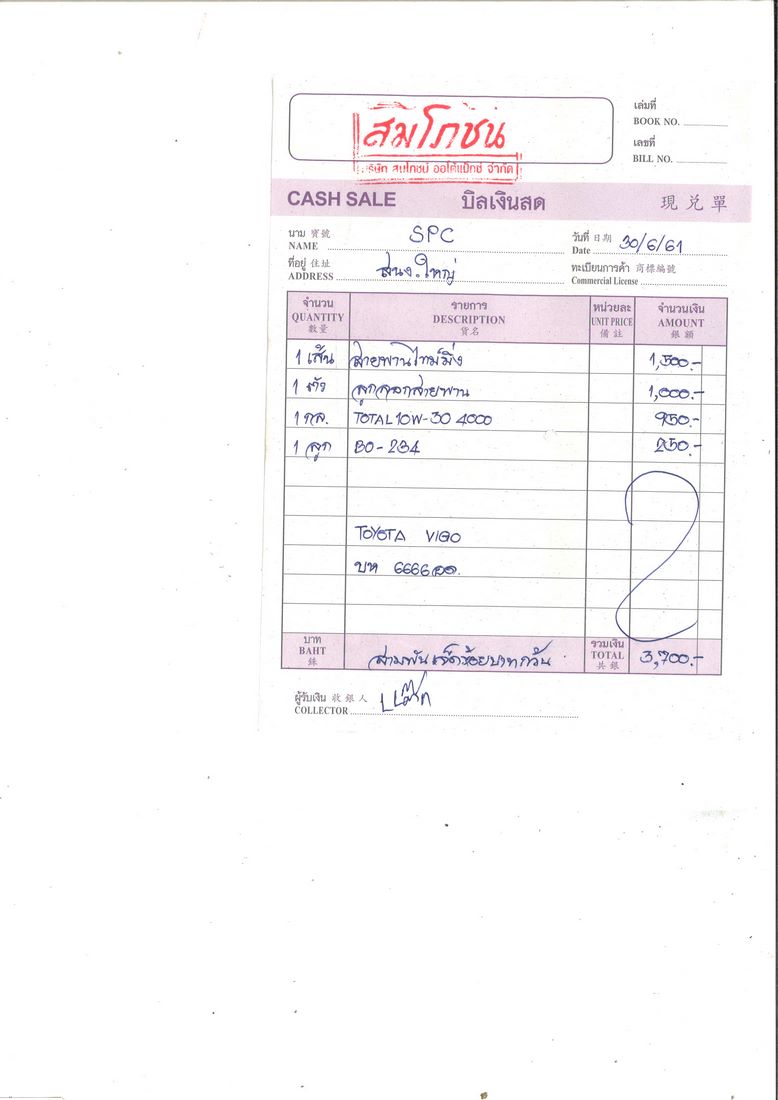 สมโภชน์
บริษัท สมโภชน์ ออโต้แม็กซ์ จำกัด
เล่มที่
BOOK NO.
เลขที่
BILL NO.
CASH SALE บิลเงินสด 現兑單
นาม 寳號 NAME SPC
วันที่ 日期 Date 30/6/61
ที่อยู่ 住址 ADDRESS สนง.ใหญ่
ทะเบียนการค้า 商標編號 Commercial License
จำนวน รายการ หน่วยละ จำนวนเงิน
QUANTITY DESCRIPTION UNIT PRICE AMOUNT
數量 貨名 備註 銀額
1 เส้น สายพานไทม์มิ่ง 1,500.-
1 ตัว ลูกลอกสายพาน 1,000.-
1 กล. TOTAL 10W-30 4000 950.-
1 ลูก BO-234 250.-
TOYOTA VIGO
บห 6666
บาท BAHT 銖 สามพันเจ็ดร้อยบาทถ้วน รวมเงิน TOTAL 共銀 3,700.-
ผู้รับเงิน 收銀人
COLLECTOR